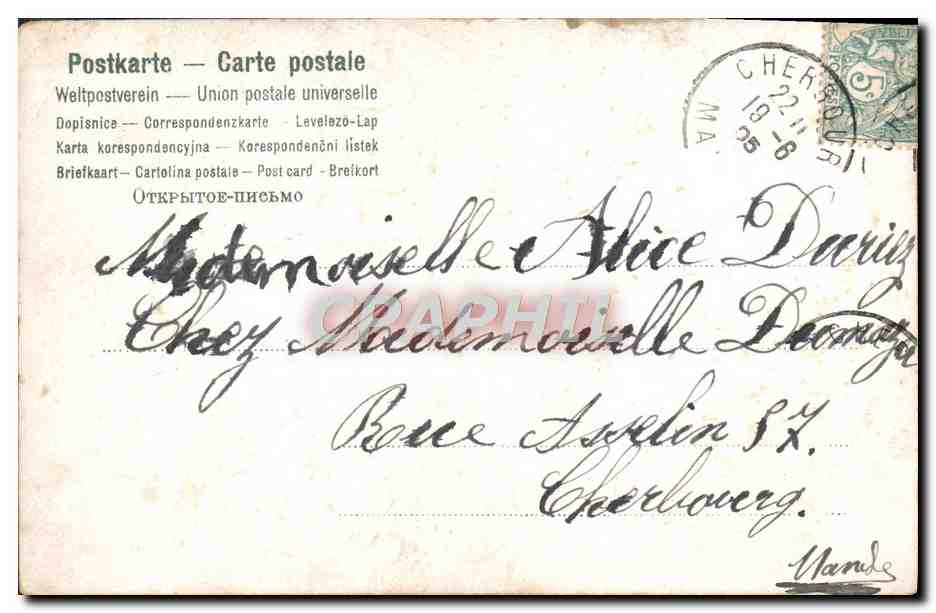 Postkarte — Carte postale
Weltpostverein — Union postale universelle
Dopisnice — Correspondenzkarte - Levelező-Lap
Karta korespondencyjna - Korespondenční lístek
Briefkaart — Cartolina postale - Post card - Breikort
Открытое-письмо
CHERBOURG
22
19-6
05
MA
5c
Mademoiselle Alice Duriez
Chez Mademoiselle
Rue Asselin 57.
Cherboverg.
Manche
CPAPHIL